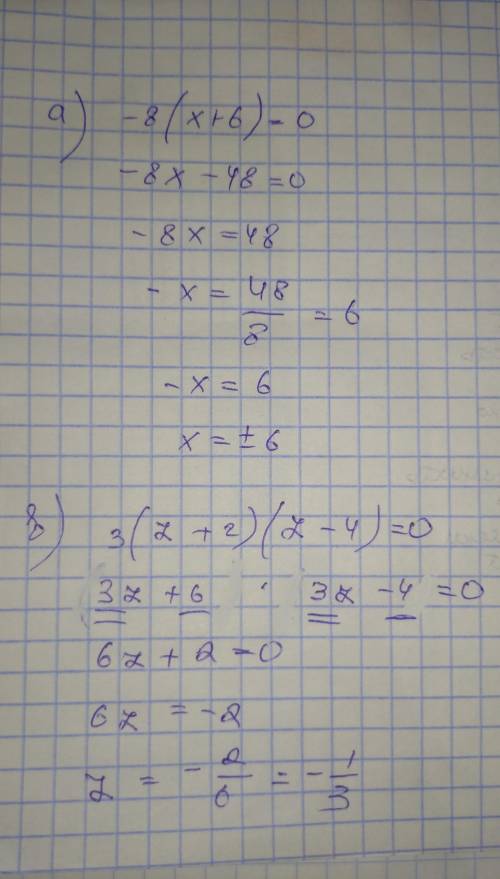 а) -8(x+6)=0
-8x -48=0
-8x =48
-x = 48/8 = 6
-x = 6
x = ±6
в) 3(z+2)(z-4)=0
3z +6 · 3z -4 =0
6z + 2 =0
6z = -2
z = -2/6 = -1/3